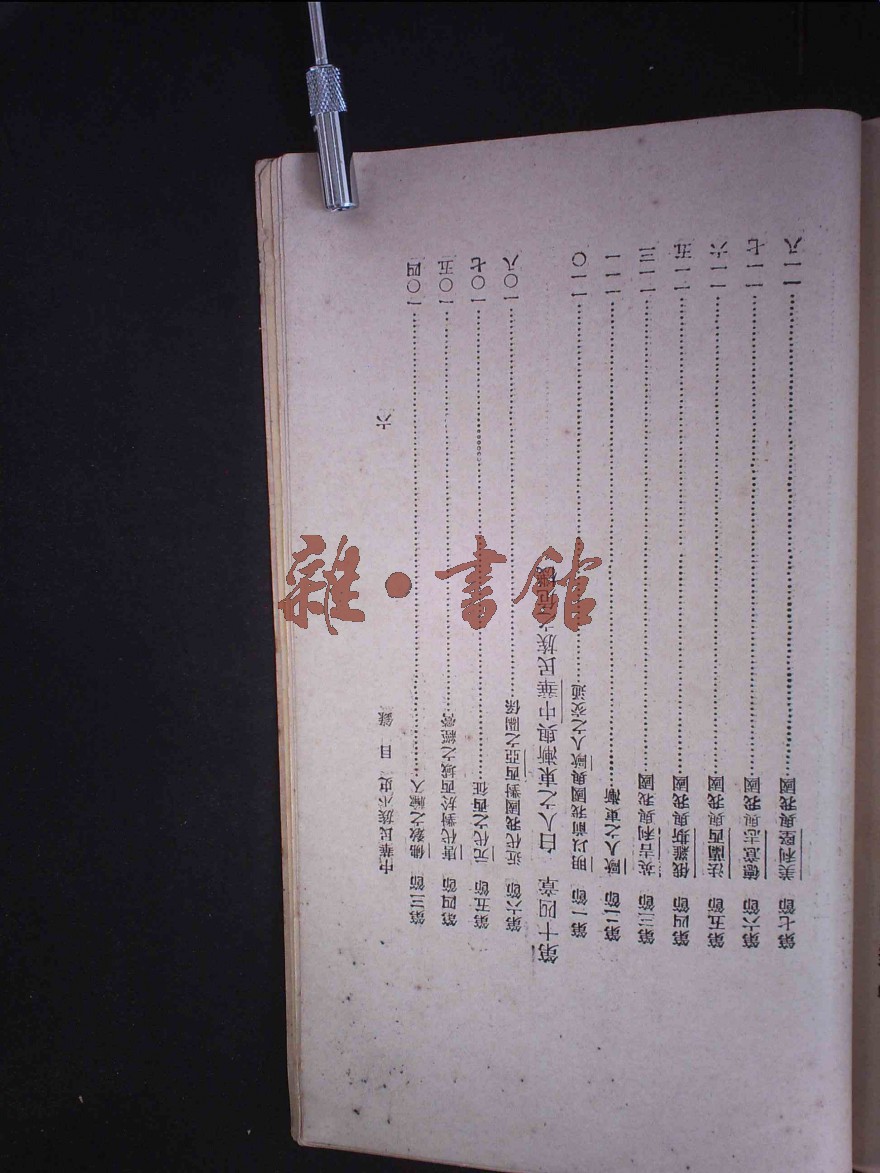 中華民族小史 目錄 六
第三節 佛教之輸入……一〇四
第四節 唐代對於西域之經營……一〇五
第五節 元代之西征……一〇七
第六節 近代我國對西亞之關係……一〇八
第十四章 白人之東漸與中華民族之危機
第一節 明以前我國與歐人之交通……一一〇
第二節 歐人之東漸……一一一
第三節 英吉利與我國……一一三
第四節 俄羅斯與我國……一一五
第五節 法蘭西與我國……一一六
第六節 德意志與我國……一一七
第七節 美利堅與我國……一一八
雜·書館